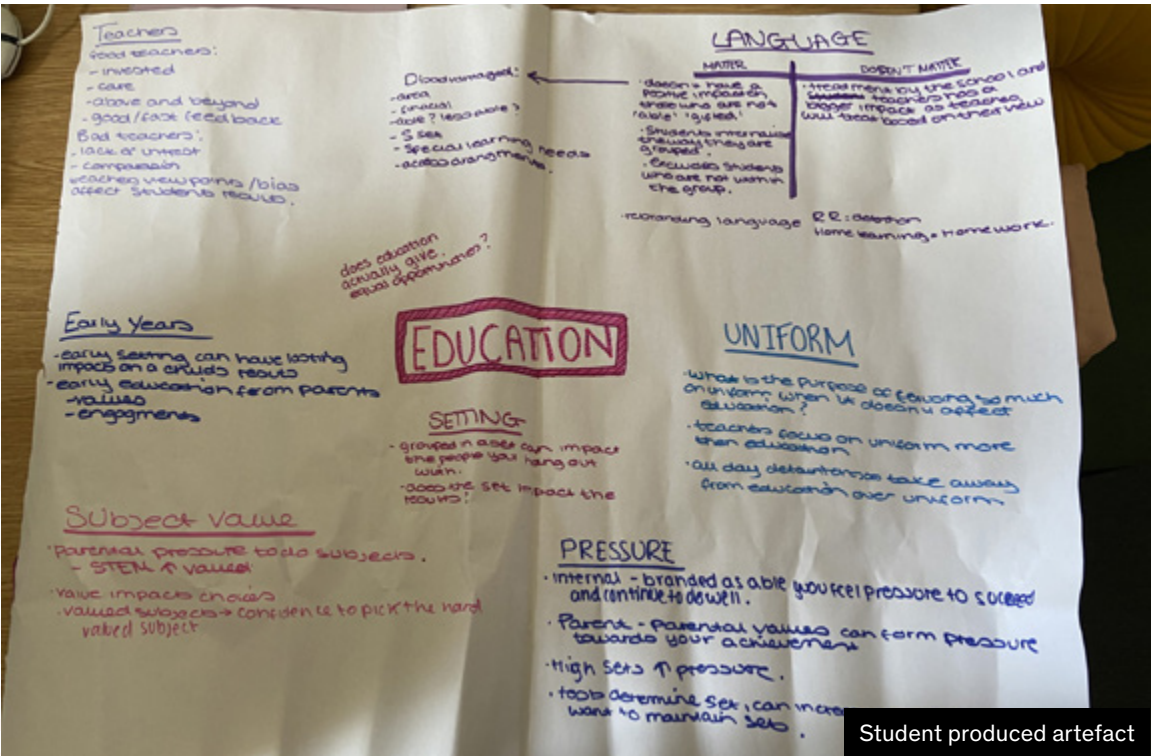 Teachers
Good teachers:
- invested
- care
- above and beyond
- good/fast feedback
Bad teachers:
- lack of intrest
- comparission
teachers view points/bias
affect students results.
Disadvantaged:
- area
- finacial
- able? less able?
- S set
- special learning needs
- access arangments.
LANGUAGE
MATTER
• doesn't have a
positive impact on
those who are not
'able' 'gifted'
• Students internalise
the way they are
grouped.
• Excludes students
who are not within
the group.
DOESN'T MATTER
• treatment by the school and
teachers has a
bigger impact as teachers
will treat based on their view
• rebranding language RR: detention
Home learning = Homework.
does education
actually give
equal opportunities?
EDUCATION
Early Years
- early setting can have lasting
impacts on a childs results
- early education from parents
- values
- engagments
SETTING
- grouped in a set can impact
the people you hang out
with.
- does the set impact the
results?
UNIFORM
• What is the purpose of focusing so much
on uniform when it doesn't affect
education?
• teachers focus on uniform more
then education
• all day detentions take away
from education over uniform
Subject value
• Parental pressure to do subjects.
- STEM ↑ valued
• value impacts choices
• valued subjects → confidence to pick the hard
valued subject
PRESSURE
• internal - branded as able you feel pressure to succeed
and continue to do well.
• Parent - Parental values can form pressure
towards your achievement
• High sets ↑ pressure.
• tests determine set, can
want to maintain sets.
Student produced artefact